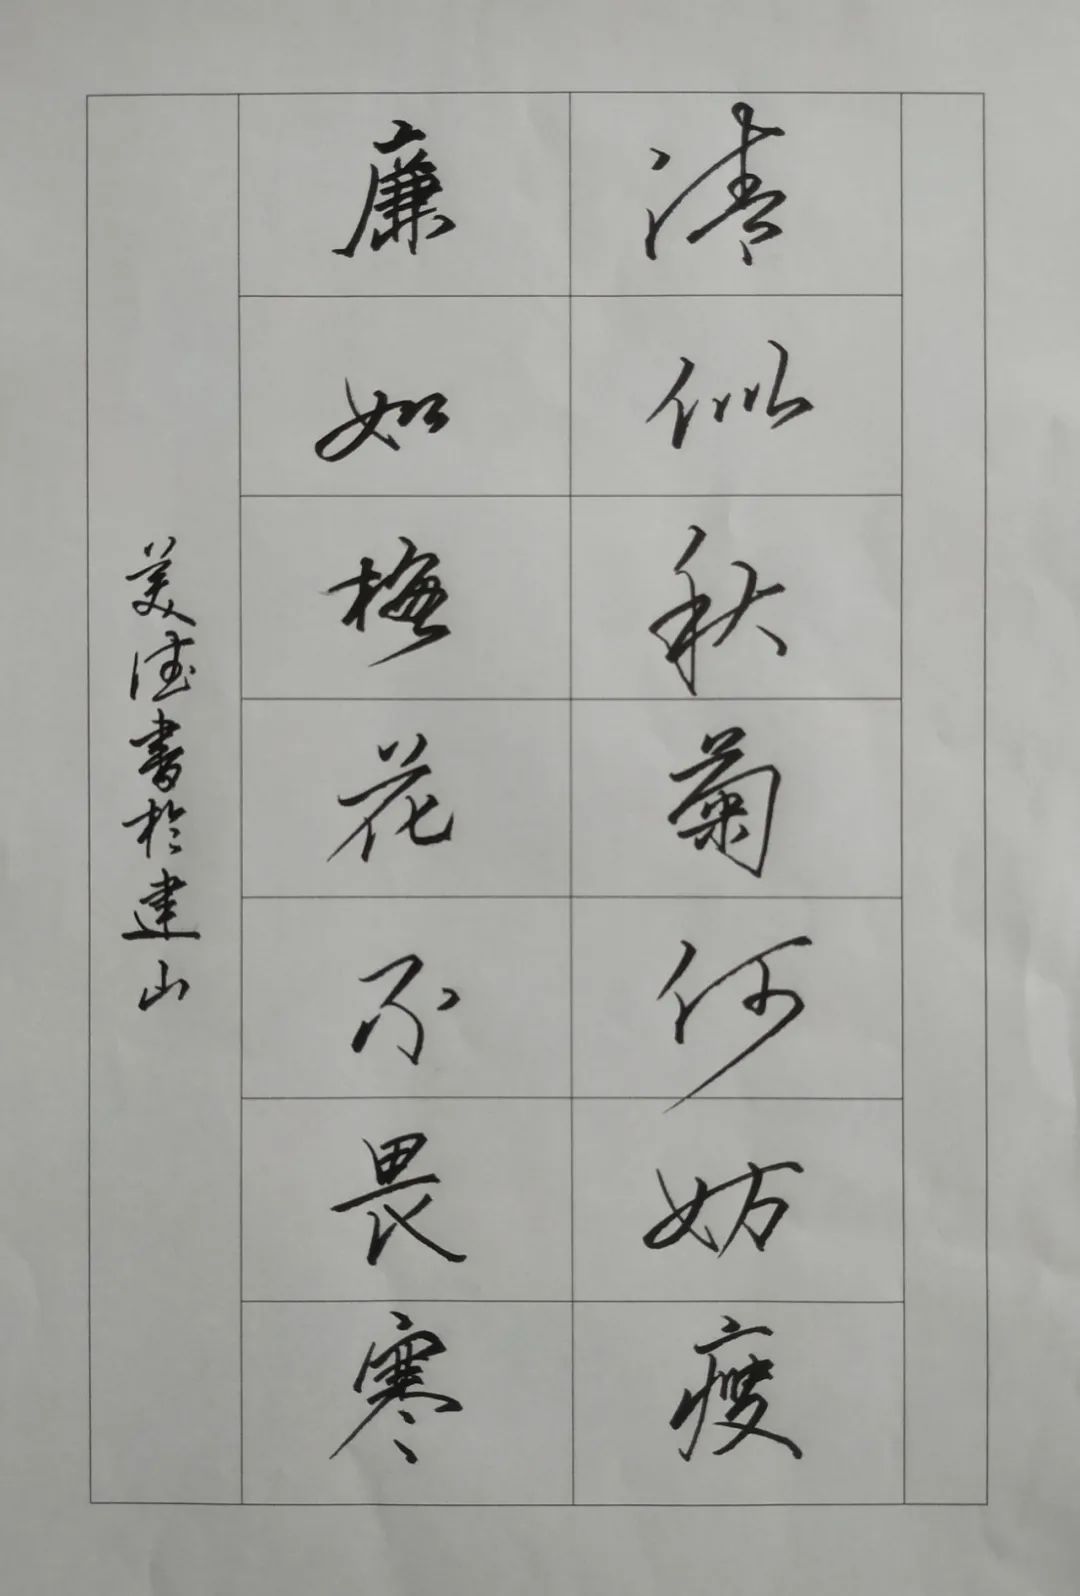 清似秋菊何妨瘦
廉如梅花不畏寒
美德書於建山